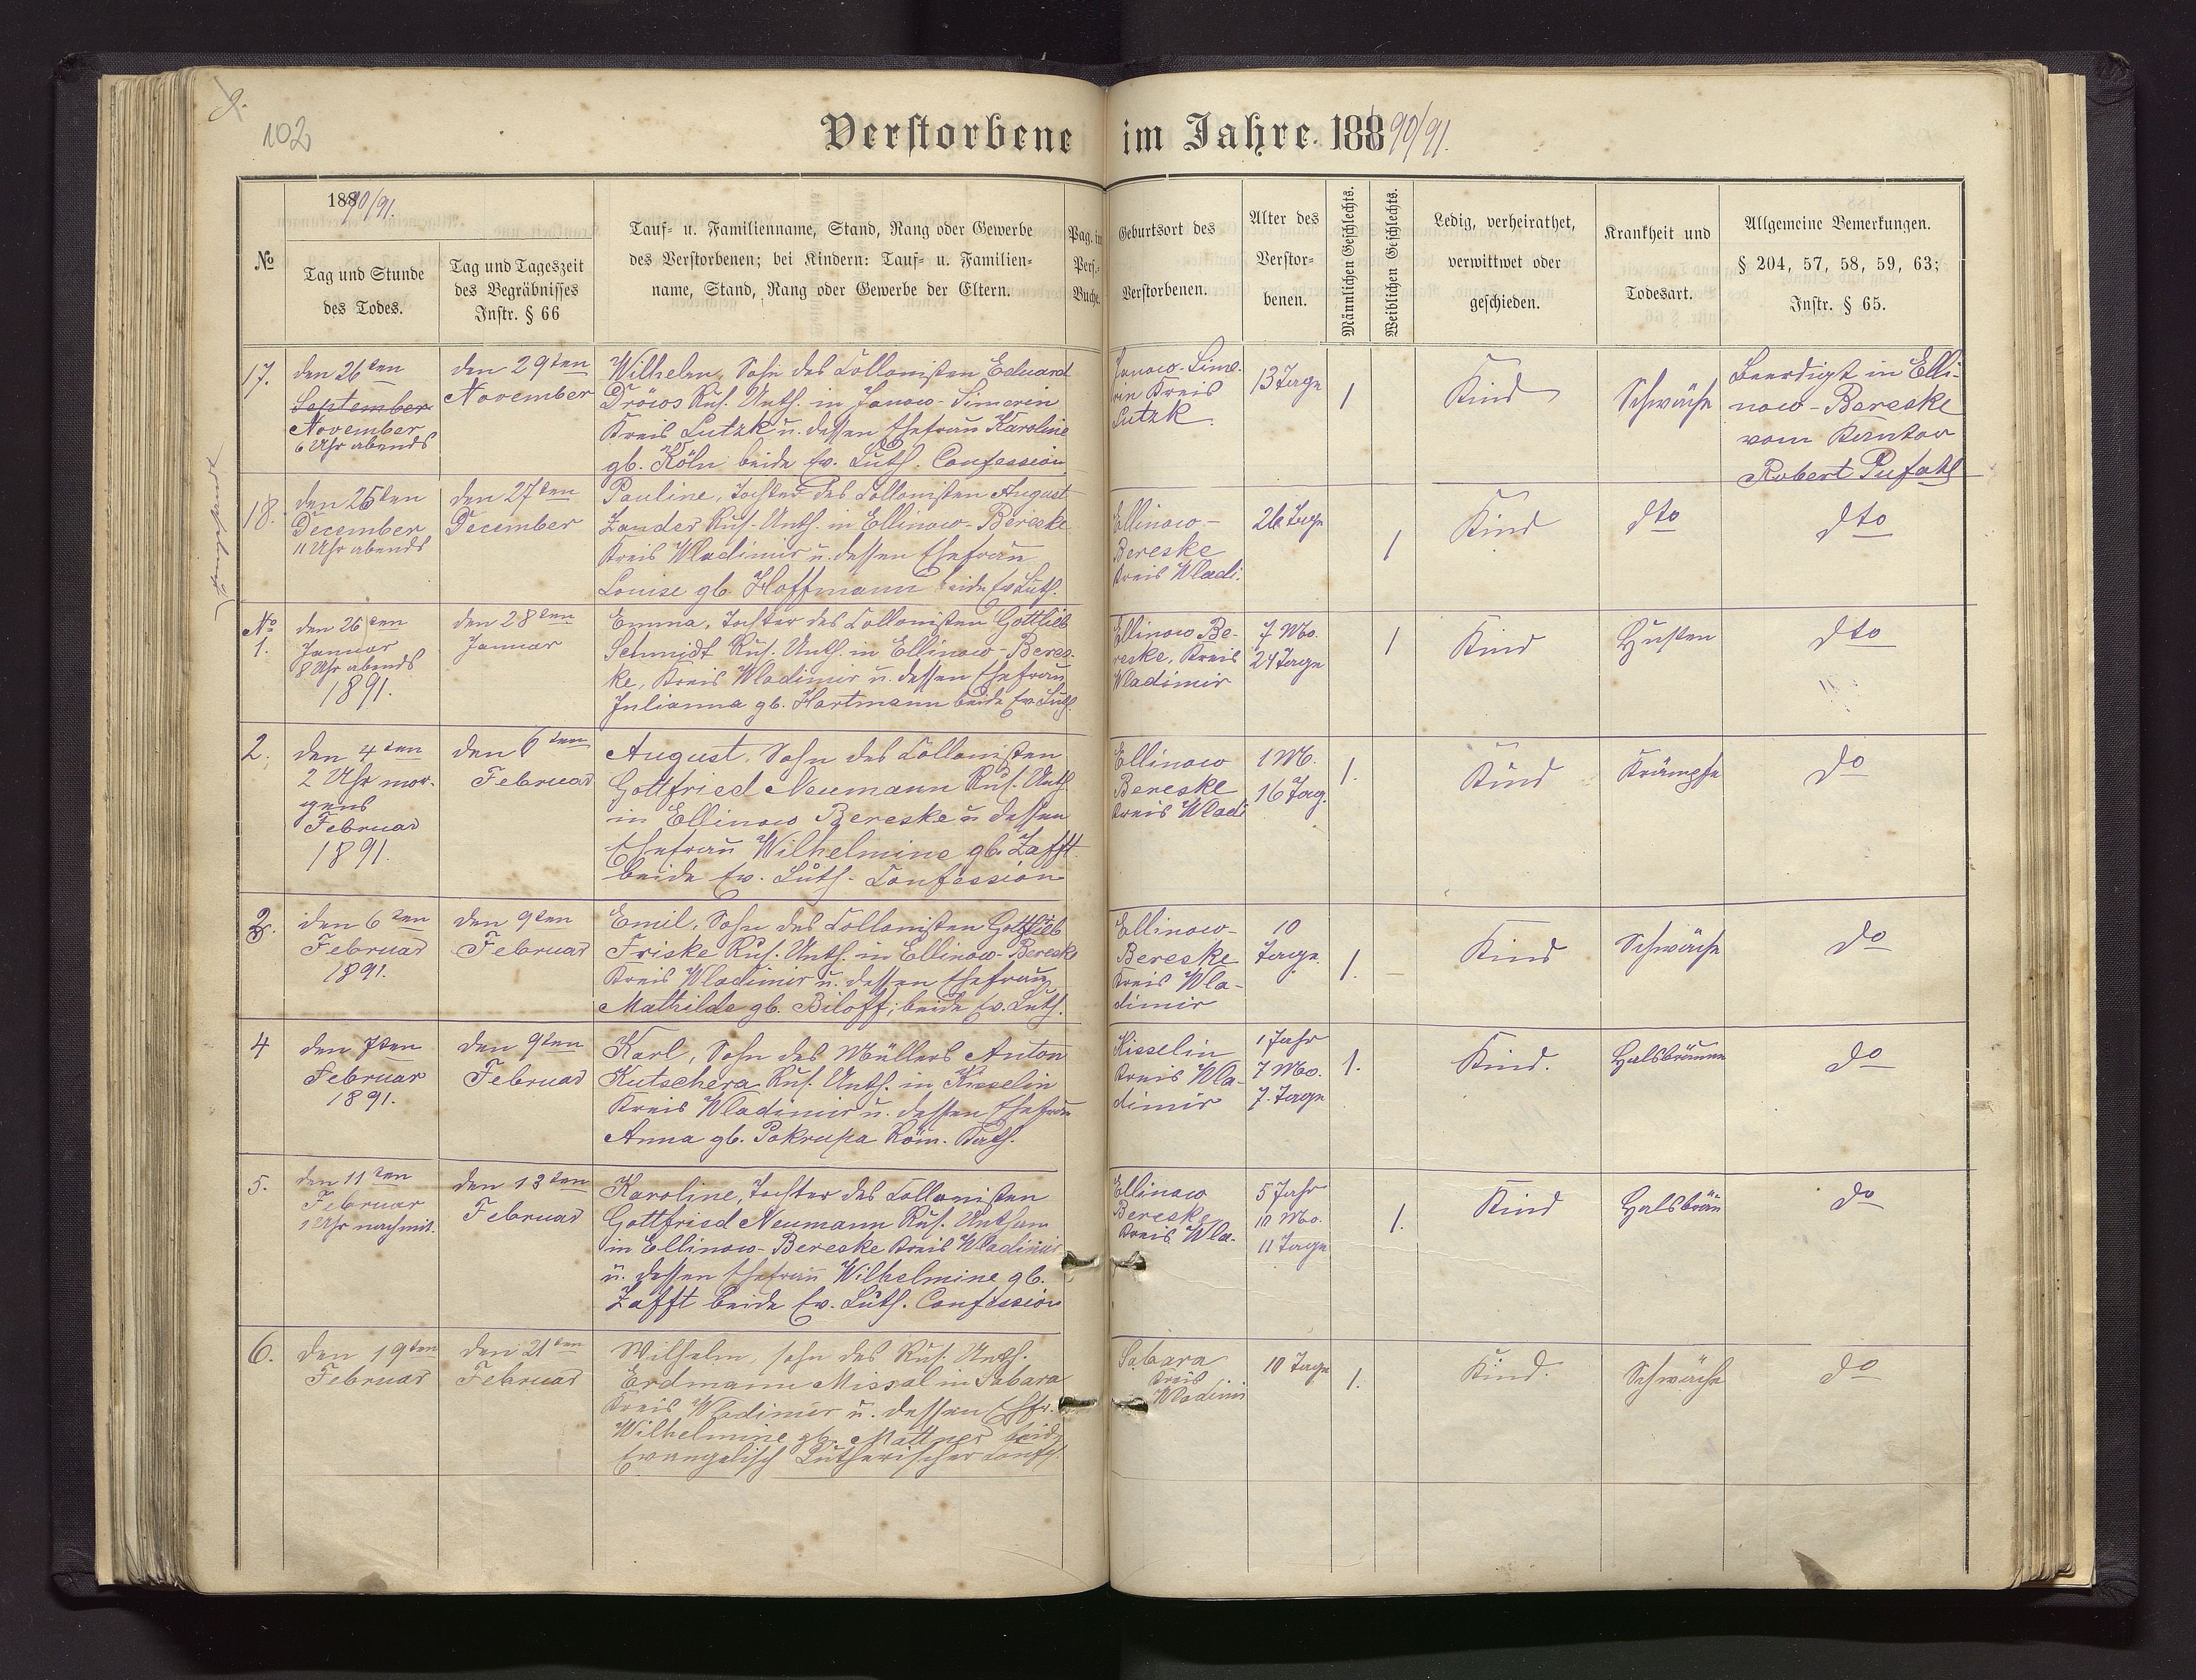 9.
102
Verstorbene im Jahre 188 90/91.
№
188 90/91.
Tag und Stunde
des Todes.
Tag und Tageszeit
des Begräbnisses
Instr. § 66
Tauf- u. Familienname, Stand, Rang oder Gewerbe
des Verstorbenen; bei Kindern: Tauf- u. Familien-
name, Stand, Rang oder Gewerbe der Eltern.
Pag. im
Pers.-
Buche.
Geburtsort des
Verstorbenen.
Alter des
Verstor-
benen.
Männlichen Geschlechts.
Weiblichen Geschlechts.
Ledig, verheirathet,
verwittwet oder
geschieden.
Krankheit und
Todesart.
Allgemeine Bemerkungen.
§ 204, 57, 58, 59, 63;
Instr. § 65.
17.
den 26ten
September
November
6 Uhr abends
den 29ten
November
Wilhelm, Sohn des Collonisten Eduard
Dröws Rus. Unth. in Janow-Simerin
Kreis Lutzk u. dessen Ehefrau Karoline
gb. Köln beide Ev. Luth. Confession
Janow-Sime-
rin Kreis
Lutzk.
13 Tage
1
Kind
Schwäche
Beerdigt in Elli-
now-Bereske
vom Kantor
Robert Pufahl
18.
den 25ten
December
11 Uhr abends
den 27ten
December
Pauline, Tochter des Collonisten August
Zander Rus. Unth. in Ellinow-Bereske
Kreis Wladimir u. dessen Ehefrau
Louise gb. Hoffmann beide Ev Luth.
Ellinow-
Bereske
Kreis Wladi.
26 Tage
1
Kind
dto
dto
№
1.
den 26ten
Januar
8 Uhr abends
1891.
den 28ten
Januar
Emma, Tochter des Collonisten Gottlieb
Schmidt Rus. Unth. in Ellinow-Beres-
ke, Kreis Wladimir u. dessen Ehefrau
Julianna gb. Hartmann beide Ev. Luth.
Ellinow Be-
reske, Kreis
Wladimir
7 Mo.
24 Tage
1
Kind
Husten
dto
2.
den 4ten
2 Uhr mor-
gens
Februar
1891.
den 6ten
Februar
August, Sohn des Collonisten
Gottfried Neumann Rus. Unth
in Ellinow Bereske u dessen
Ehefrau Wilhelmine gb. Zafft
beide Ev. Luth. Confession
Ellinow
Bereske
Kreis Wladi
1 M.
16 Tag.
1.
Kind
Krämpfe
do
3.
den 6ten
Februar
1891.
den 9ten
Februar
Emil, Sohn des Collonisten Gottlieb
Friske Rus. Unth. in Ellinow-Bereske
Kreis Wladimir u. dessen Ehefrau
Mathilde gb. Biloff, beide Ev. Luth.
Ellinow-
Bereske
Kreis Wla-
dimir
10
Tage.
1.
Kind
Schwäche
do
4
den 7ten
Februar
1891.
den 9ten
Februar
Karl, Sohn des Müllers Anton
Kutschera Rus. Unth. in Kisselin
Kreis Wladimir u. dessen Ehefrau
Anna gb. Pokrupa Röm. Kath.
Kisselin
Kreis Wla-
dimir
1 Jahr
7 Mo.
7. Tage
1.
Kind.
Halsbräune
do
5.
den 11ten
Februar
1 Uhr nachmit.
den 13ten
Februar
Karoline, Tochter des Collonisten
Gottfried Neumann Rus. Unthan
in Ellinow-Bereske Kreis Wladimir
u. dessen Ehefrau Wilhelmine gb.
Zafft beide Ev. Luth. Confession
Ellinow
Bereske
Kreis Wla-
5 Jahr
10 Mo.
11 Tage
1.
Kind
Halsbräu
do
6.
den 19ten
Februar
den 21ten
Februar
Wilhelm, sohn des Rus. Unth.
Erdmann Missal in Sabara
Kreis Wladimir u. dessen Ehfr.
Wilhelmine gb. Mattner beide
Evangelisch Lutherischer Confes.
Sabara
Kreis
Wladimi
10 Tage
1.
Kind.
Schwäche
do